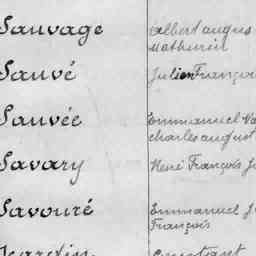 Sauvage Albert augus
Mathurin
Sauvé Julien Françoi
Sauvée Emmanuel Va
Charles august
Savary René François J
Savouré Emmanuel J
François
Constant